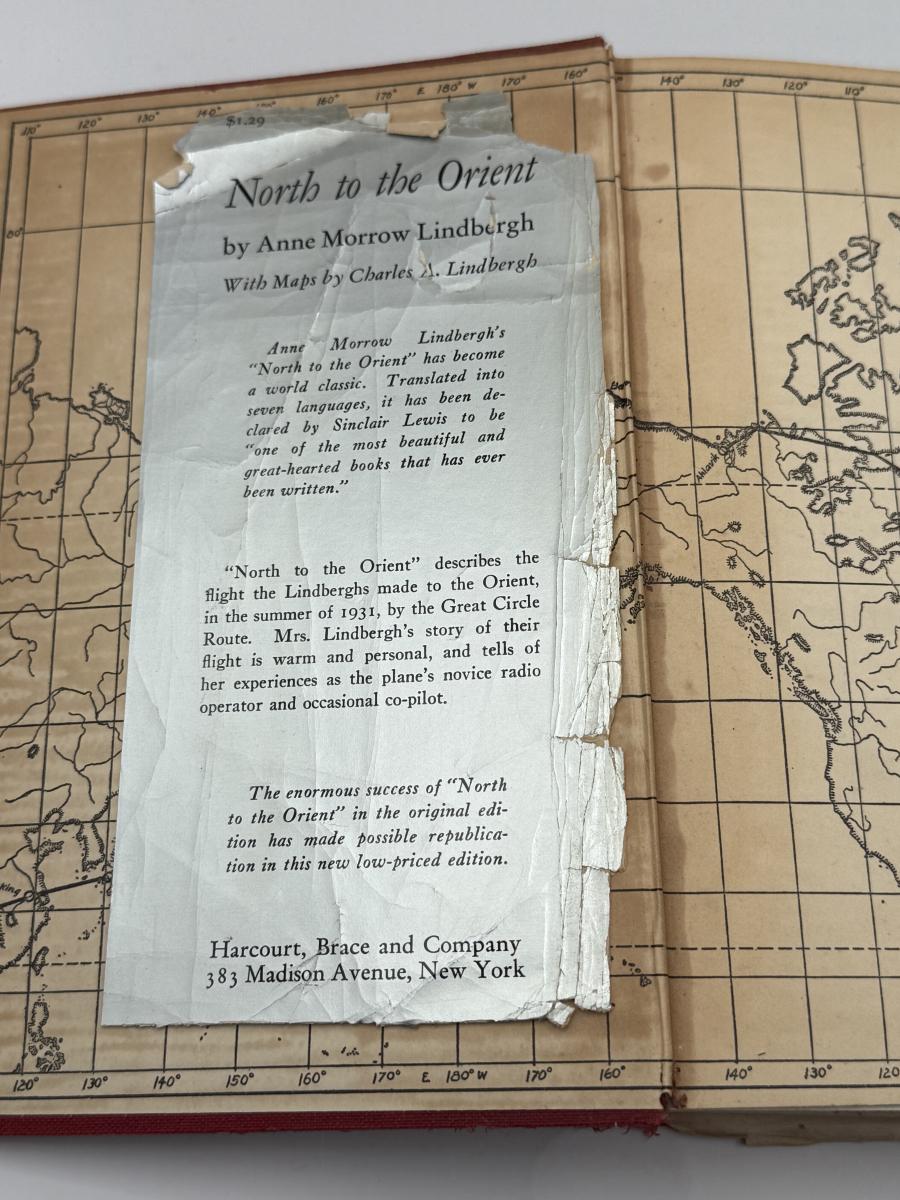 110° 120° 130° 140° 160° 170° E 180° W 170° 160° 140° 130° 120° 110°
$1.29
North to the Orient
by Anne Morrow Lindbergh
With Maps by Charles A. Lindbergh
Anne Morrow Lindbergh's
"North to the Orient" has become
a world classic. Translated into
seven languages, it has been de-
clared by Sinclair Lewis to be
"one of the most beautiful and
great-hearted books that has ever
been written."
Aklavik
"North to the Orient" describes the
flight the Lindberghs made to the Orient,
in the summer of 1931, by the Great Circle
Route. Mrs. Lindbergh's story of their
flight is warm and personal, and tells of
her experiences as the plane's novice radio
operator and occasional co-pilot.
The enormous success of "North
to the Orient" in the original edi-
tion has made possible republica-
tion in this new low-priced edition.
Harcourt, Brace and Company
383 Madison Avenue, New York
120° 130° 140° 150° 160° 170° E 180° W 170° 160° 140° 130° 120